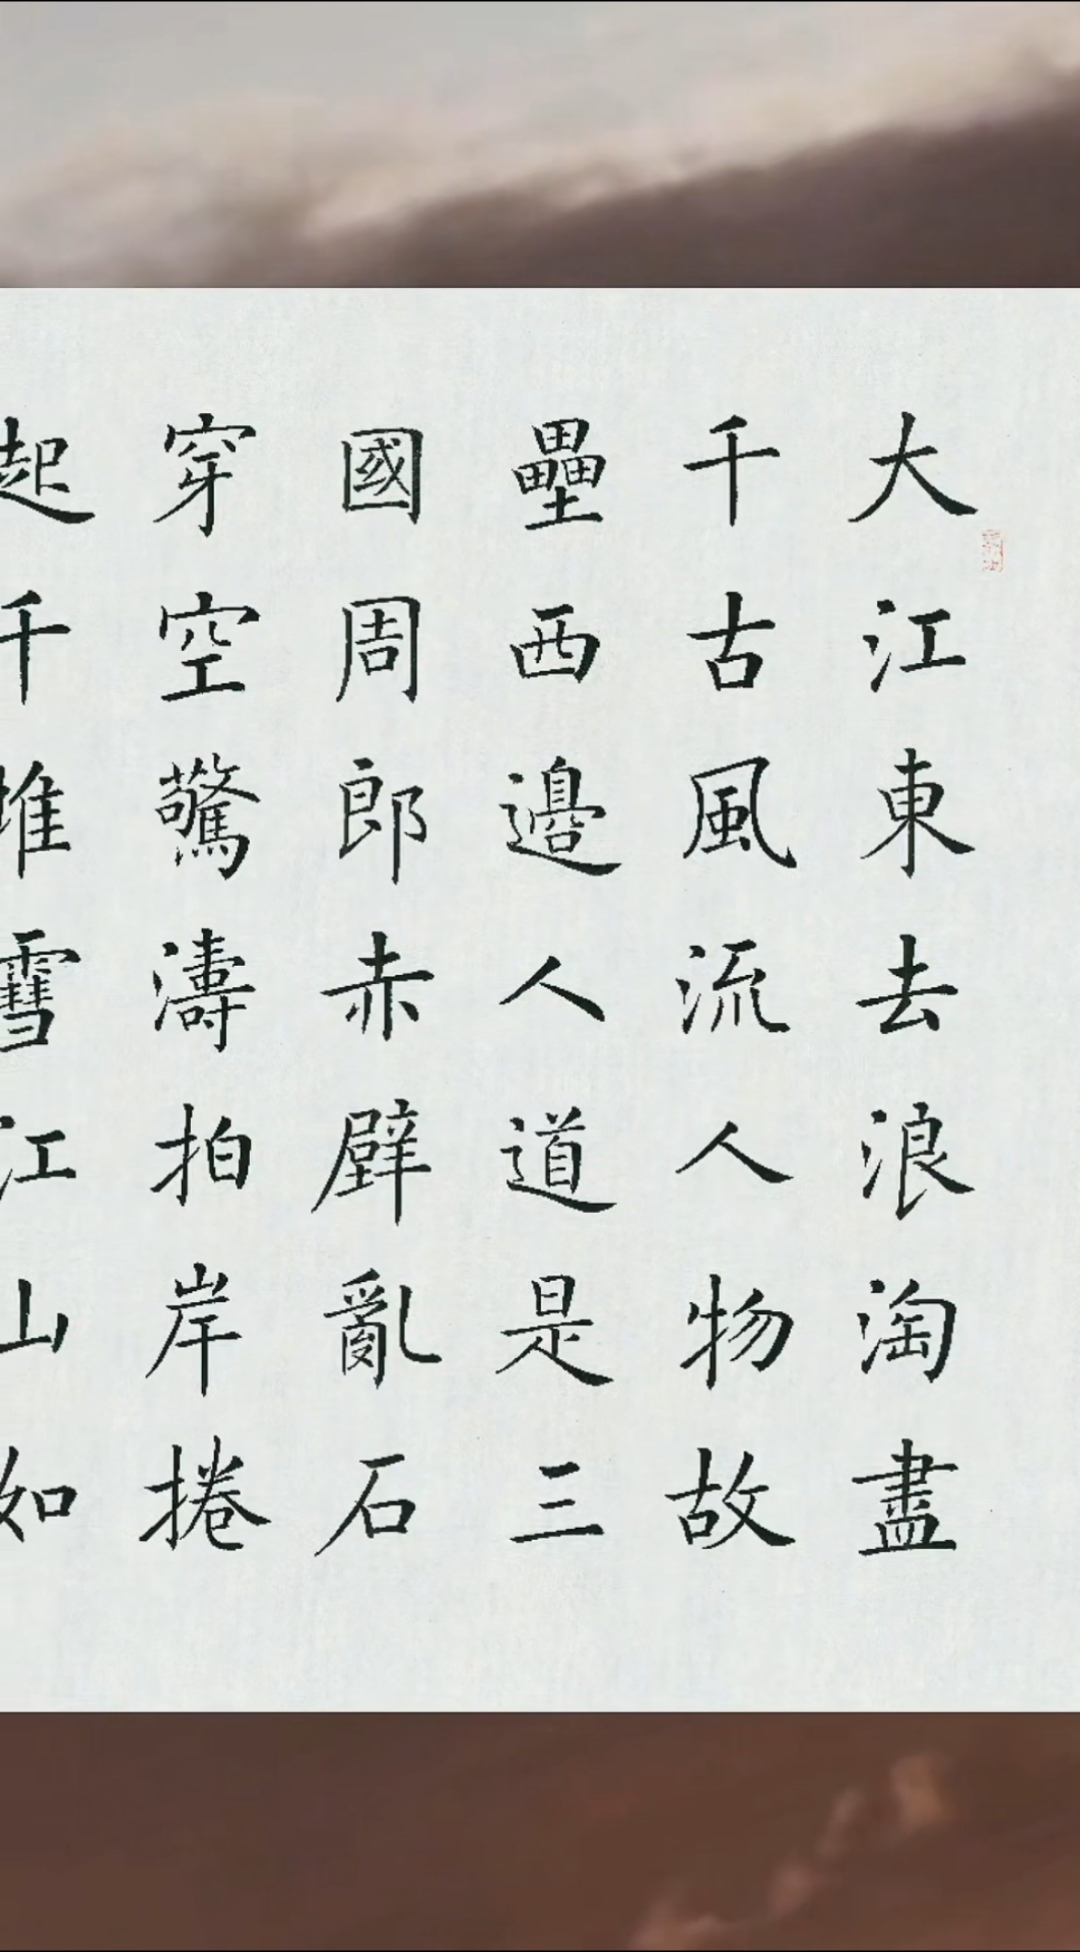 大江東去浪淘盡
千古風流人物故
壘西邊人道是三
國周郎赤壁亂石
穿空驚濤拍岸捲
起千堆雪江山如